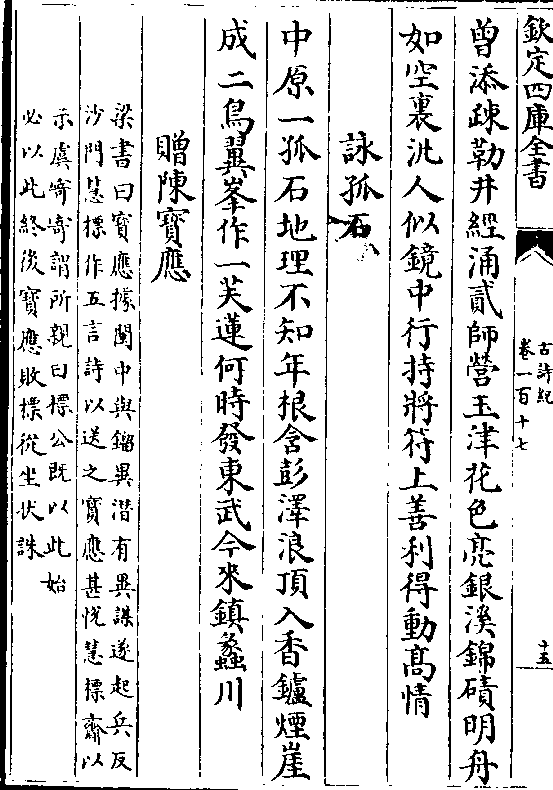 欽定四庫全書
古詩紀
卷一百十七
十五
曽添疎勒井經涌貳師營玉津花色亮銀溪錦磧明舟
如空裏汎人似鏡中行持將符上善利得動髙情
詠孤石
中原一孤石地理不知年根含彭澤浪頂入香鑪煙崖
成二鳥翼峯作一芙蓮何時發東武今來鎮蠡川
贈陳寳應
梁書曰寳應據閩中與鎦異潛有異謀遂起兵反
沙門慧標作五言詩以送之寳應甚悅慧標齎以
示虞寄寄謂所親曰標公既以此始
必以此終後寳應敗標從坐伏誅